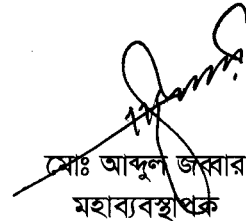 মোঃ আব্দুল জব্বার
মহাব্যবস্থাপক